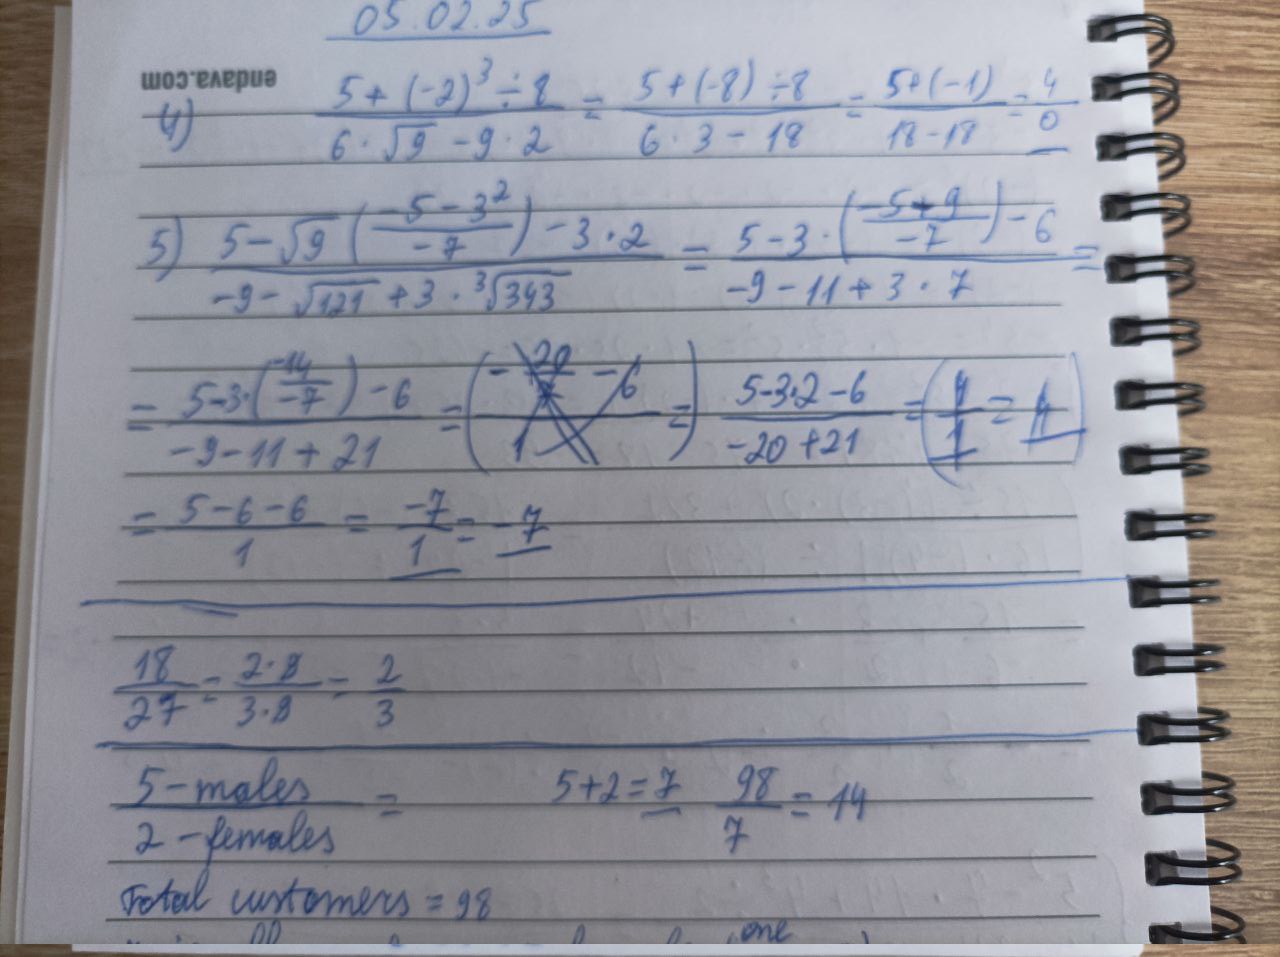 05.02.25
endava.com
4) (5 + (-2)³ ÷ 8)/(6 · √9 - 9 · 2) = (5 + (-8) ÷ 8)/(6 · 3 - 18) = (5 + (-1))/(18 - 18) = 4/0
5) (5 - √9 ((-5 - 3²)/(-7)) - 3 · 2)/(-9 - √121 + 3 · ³√343) = (5 - 3 · ((-5 + 9)/(-7)) - 6)/(-9 - 11 + 3 · 7) =
= (5 - 3 · ((-14)/(-7)) - 6)/(-9 - 11 + 21) = ( =) (5 - 3 · 2 - 6)/(-20 + 21) = (
= (5 - 6 - 6)/1 = (-7)/1 = -7
18/27 = (2 · 9)/(3 · 9) = 2/3
5 - males / 2 - females = 5 + 2 = 7 98/7 = 14
Total customers = 98
one